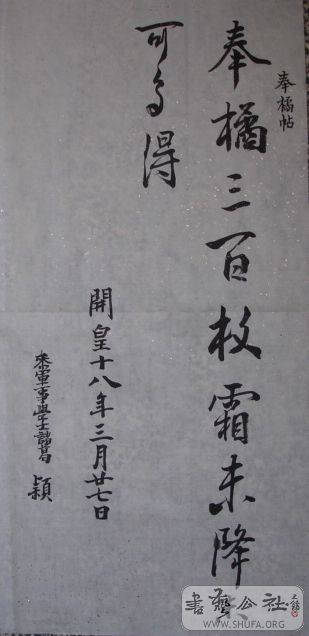 奉橘帖
奉橘三百枚霜未降未
可多得
開皇十八年三月廿七日
參軍事學士諸葛穎
書藝公社
WWW.SHUFA.ORG